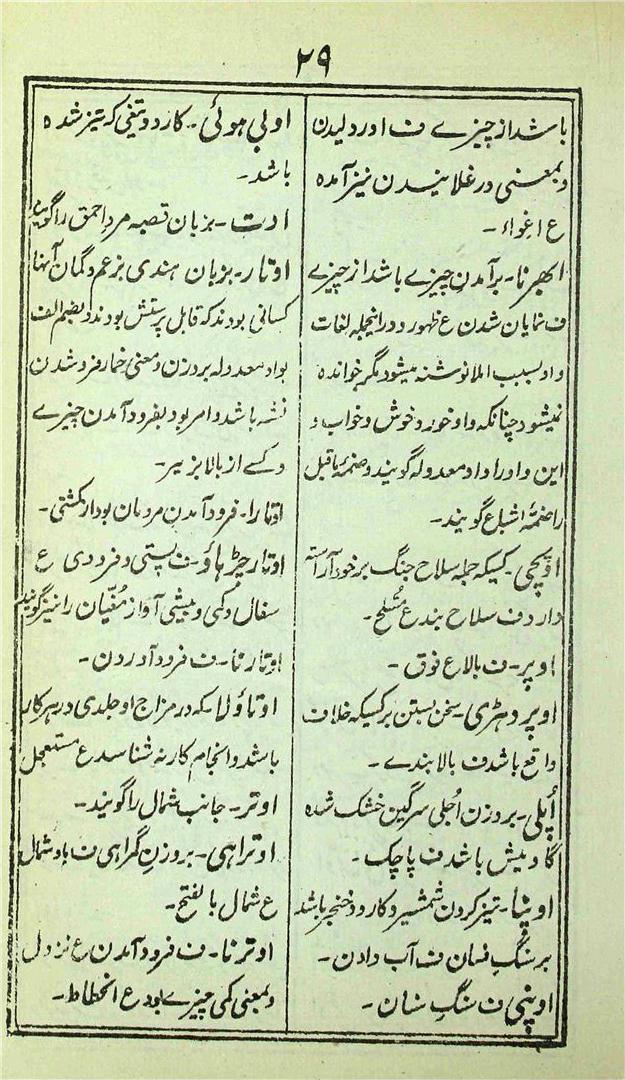 ۲۹
باشد از چیزے ف اوردلیدن
و بمعنی در غلانیدن نیز آمده
ع اغواء -
ابھرنا - برآمدن چیزے باشد از چیزے
ف نمایان شدن ع ظهور و در اینجمله لغات
واو بسبب املا نوشته میشود مگر خوانده
نمیشود چنانکه واو خور و خوش و خواب و
این واو را واو معدوله گویند و ضمهٔ ماقبل
را ضمهٔ اشباع گویند -
اوپچی - کسیکه جمله سلاح جنگ بر خود آراسته
دارد ف سلاح بند ع مُسلّح -
اوپر - ف بالا ع فوق -
اوپر دهڑی - سخن بستن بر کسیکه خلاف
واقع باشد ف بالا بندے -
اُپلی - بروزن اُجلی سرگین خشک شده
گاؤمیش باشد ف پاچک -
اوپنا - تیز کردن شمشیر و کارد و خنجر باشد
بر سنگ فسان ف آب دادن -
اوپنی ف سنگِ سان -
اوپی هوئی - کارد و تیغی که تیز شده
باشد -
ادت - بزبان قصبه مرد احمق را گویند
اوتار - بزبان هندی بزعم و گمان آنها
کسانی بودند که قابل پرستش بودند و بضم الف
بواو معدوله بروزن و معنی خمار فرو شدن
نشه باشد و امر بود بفرود آمدن چیزے
و کسے از بالا بزیر -
اوتارا - فرود آمدن مردمان بود از کشتی -
اوتار چڑهاؤ - ف پستی و فرودی ع
سفال و کمی و بیشی آواز مُغنّیان را نیز گویند
اوتارنا - ف فرود آوردن -
اوتاؤلا - که در مزاج او جلدی در هر کار
باشد و انجام کار نه شناسد ع مستعجل
اوتر - جانب شمال را گویند -
اوتراهی - بروزن گمراهی ف باد شمال
ع شمال بالفتح -
اوترنا - ف فرود آمدن ع نزول
و بمعنی کمی چیزے بود ع انحطاط -